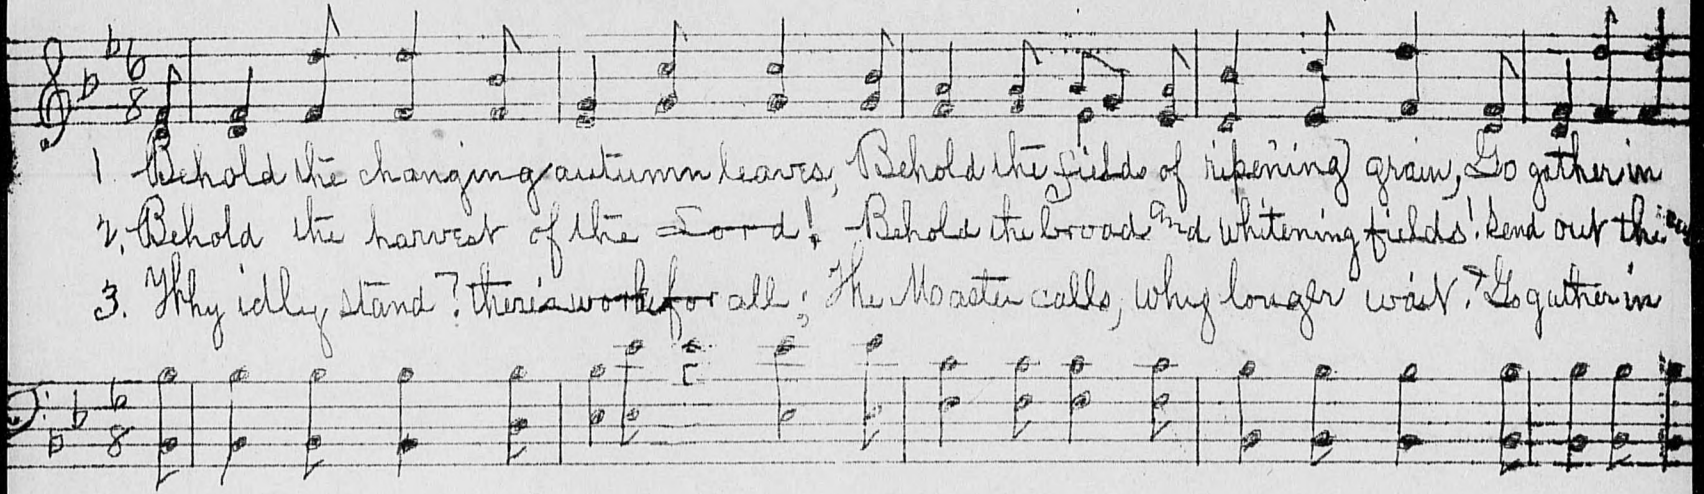 6
8
1 Behold the changing autumn leaves, Behold the fields of ripening grain, Go gather in
2. Behold the harvest of the Lord! Behold the broad and whitening fields! Send out the
3. Why idly stand? there's work for all; The Master calls, why longer wait? Go gather in
8